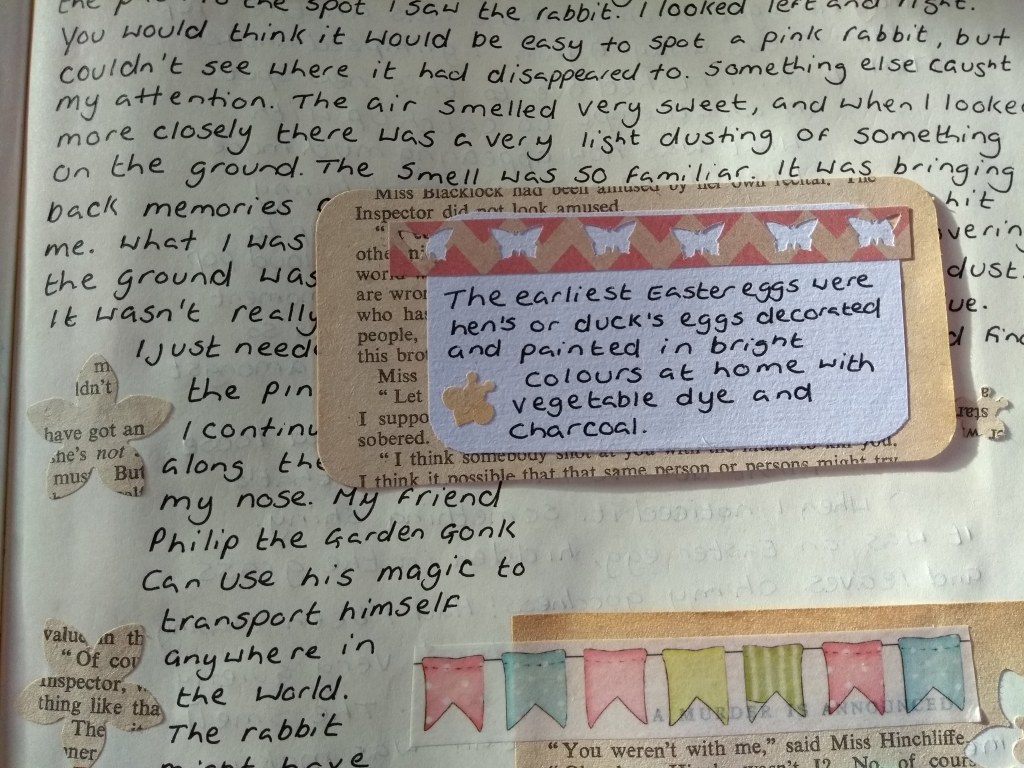 the spot I saw the rabbit. I looked left and right.
You would think it would be easy to spot a pink rabbit, but
couldn't see where it had disappeared to. Something else caught
my attention. The air smelled very sweet, and when I looked
more closely there was a very light dusting of something
on the ground. The smell was so familiar. It was bringing
back memories
hit
me. What I was
the ground was
dust.
It wasn't really
I just need
the pin
I continu
along the
my nose. My friend
Philip the Garden Gonk
can use his magic to
transport himself
anywhere in
the world.
The rabbit
might have
Miss Blacklock had been amused by her own recital. The
Inspector did not look amused.
worl
are wron
who ha
people,
this bro
Miss
"Let
I suppo
sobered.
"I think somebody shot at you with the intent to kill you.
I think it possible that that same person or persons might try
The earliest Easter eggs were
hen's or duck's eggs decorated
and painted in bright
colours at home with
vegetable dye and
charcoal.
m
ldn't
have got an
she's not
must But
value in th
"Of cou
inspector,
thing like tha
The
ner
A MURDER IS ANNOUNCED
"You weren't with me," said Miss Hinchliffe,
No, of cours